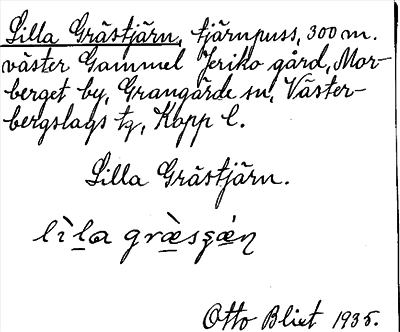 Lilla Grästjärn, tjärnpuss, 300 m.
väster Gammel Jeriko gård, Mor-
berget by, Grangärde sn, Väster-
bergslags tg, Kopp l.
Lilla Grästjärn.
lìla græ̀sʂǽɳ
Otto Blixt 1935.